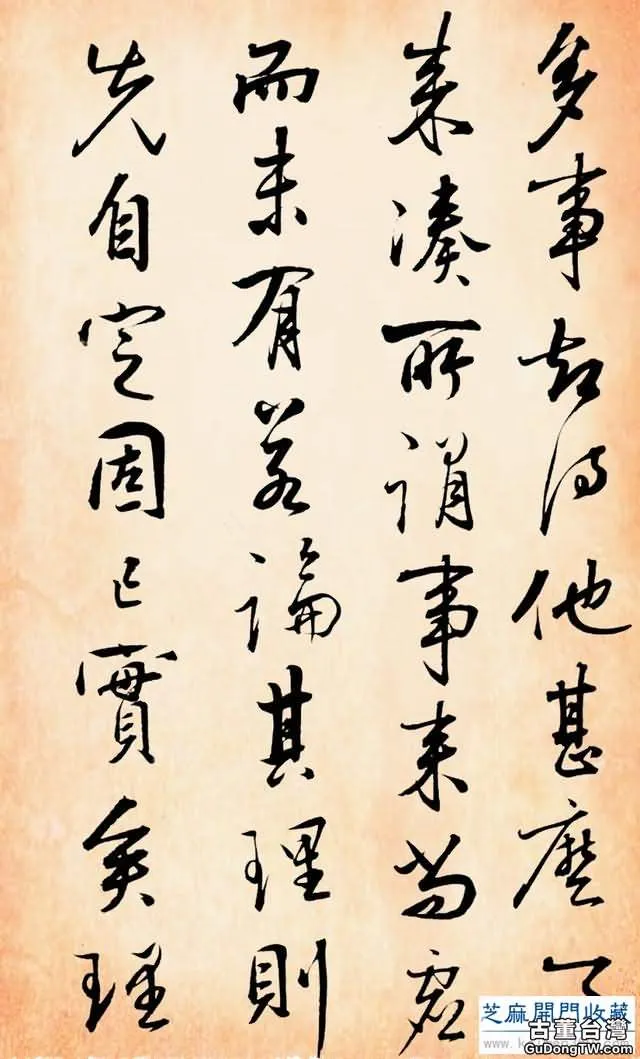 多事却待他甚麼
来湊所謂事来尚虚
而未有若論其理則
先自定固已實矣理
芝麻開門收藏
古董台灣
GuDongTW.com